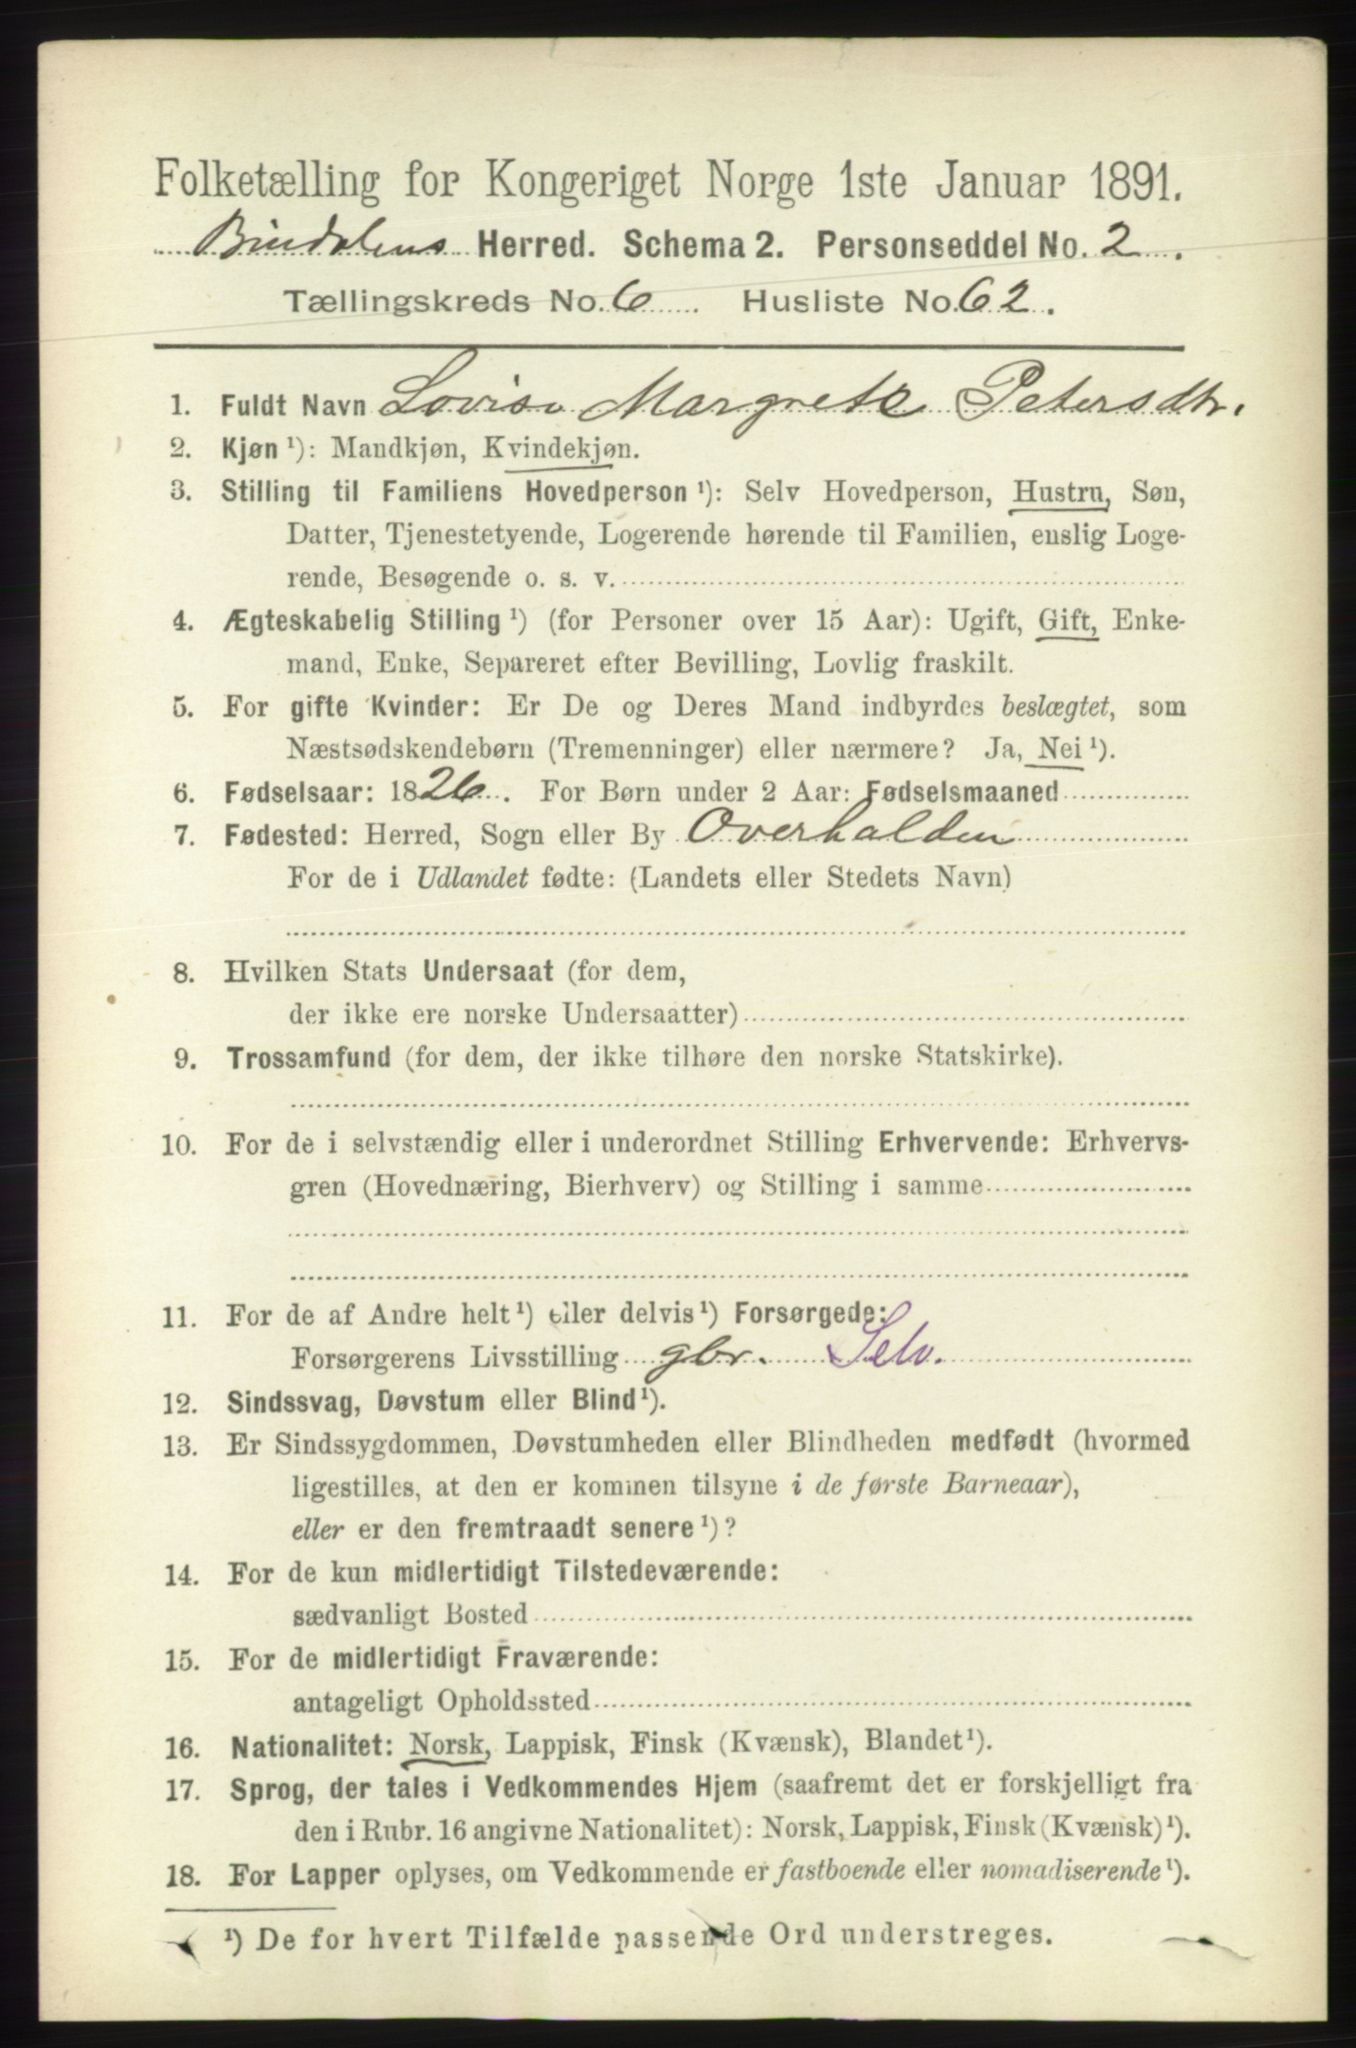 Folketælling for Kongeriget Norge 1ste Januar 1891.
Bindalens Herred. Schema 2. Personseddel No. 2.
Tællingskreds No. 6 Husliste No. 62.
1. Fuldt Navn Lovise Margrete Petersdtr.
2. Kjøn ¹): Mandkjøn, Kvindekjøn.
3. Stilling til Familiens Hovedperson ¹): Selv Hovedperson, Hustru, Søn,
Datter, Tjenestetyende, Logerende hørende til Familien, enslig Loge-
rende, Besøgende o. s. v.
4. Ægteskabelig Stilling ¹) (for Personer over 15 Aar): Ugift, Gift, Enke-
mand, Enke, Separeret efter Bevilling, Lovlig fraskilt.
5. For gifte Kvinder: Er De og Deres Mand indbyrdes beslægtet, som
Næstsødskendebørn (Tremenninger) eller nærmere? Ja, Nei ¹).
6. Fødselsaar: 1826. For Børn under 2 Aar: Fødselsmaaned
7. Fødested: Herred, Sogn eller By Overhalden
For de i Udlandet fødte: (Landets eller Stedets Navn)
8. Hvilken Stats Undersaat (for dem,
der ikke ere norske Undersaatter)
9. Trossamfund (for dem, der ikke tilhøre den norske Statskirke).
10. For de i selvstændig eller i underordnet Stilling Erhvervende: Erhvervs-
gren (Hovednæring, Bierhverv) og Stilling i samme
11. For de af Andre helt ¹) eller delvis ¹) Forsørgede:
Forsørgerens Livsstilling gbr. Selv.
12. Sindssvag, Døvstum eller Blind ¹).
13. Er Sindssygdommen, Døvstumheden eller Blindheden medfødt (hvormed
ligestilles, at den er kommen tilsyne i de første Barneaar),
eller er den fremtraadt senere ¹)?
14. For de kun midlertidigt Tilstedeværende:
sædvanligt Bosted
15. For de midlertidigt Fraværende:
antageligt Opholdssted
16. Nationalitet: Norsk, Lappisk, Finsk (Kvænsk), Blandet ¹).
17. Sprog, der tales i Vedkommendes Hjem (saafremt det er forskjelligt fra
den i Rubr. 16 angivne Nationalitet): Norsk, Lappisk, Finsk (Kvænsk) ¹).
18. For Lapper oplyses, om Vedkommende er fastboende eller nomadiserende ¹).
¹) De for hvert Tilfælde passende Ord understreges.